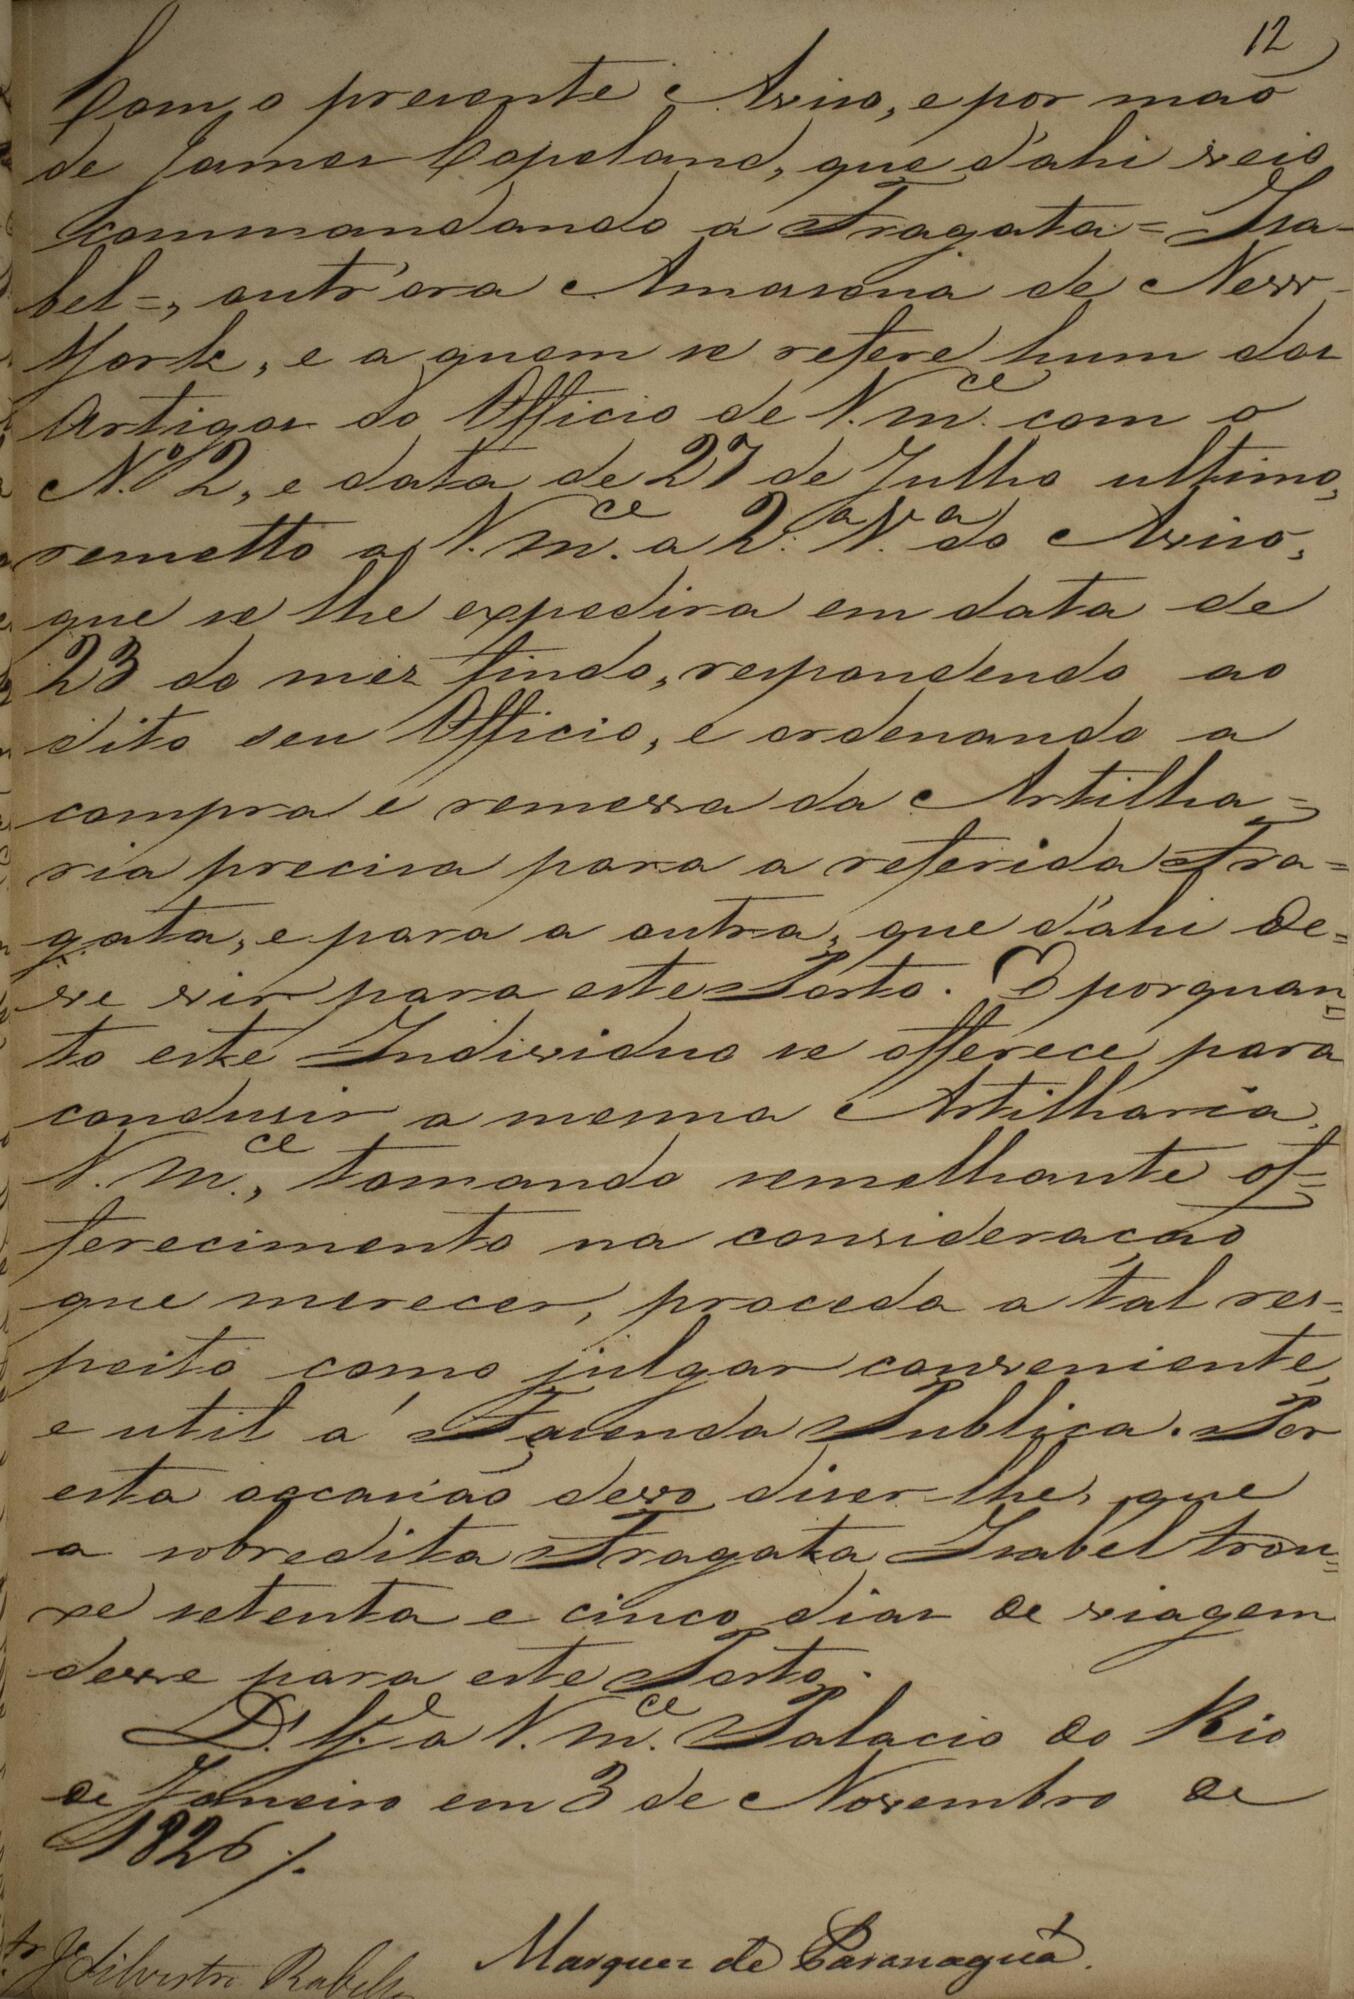 12
Com o presente Aviso, e por mão
de James Copeland, que d'ahi veio
commandando a Fragata = Isa-
bel =, outr'ora Amasona de New-
York, e a quem se refere hum dos
Artigos do Officio de V. m.ce com o
N.º 2, e data de 27 de Julho ultimo,
remetto a V. m.ce a 2.ª V.ª do Aviso,
que se lhe expedira em data de
23 do mez findo, respondendo ao
dito seu Officio, e ordenando a
compra e remessa da Artilha=
ria precisa para a referida Fra=
gata, e para a outra, que d'ahi de=
ve vir para este Porto. E porquan=
to este Individuo se offerece para
condusir a mesma Artilharia,
V. m.ce, tomando semelhante of=
ferecimento na consideração
que merecer, proceda a tal res=
peito como julgar conveniente,
e util á Fazenda Publica. Por
esta occasião devo diser-lhe, que
a sobredita Fragata Isabel trou=
xe setenta e cinco dias de viagem
desse para este Porto.
D.s G.e a V. m.ce Palacio do Rio
de Janeiro em 3 de Novembro de
1826 /.
Marquez de Paranaguá.
Sr. Je Silvestre Rabello